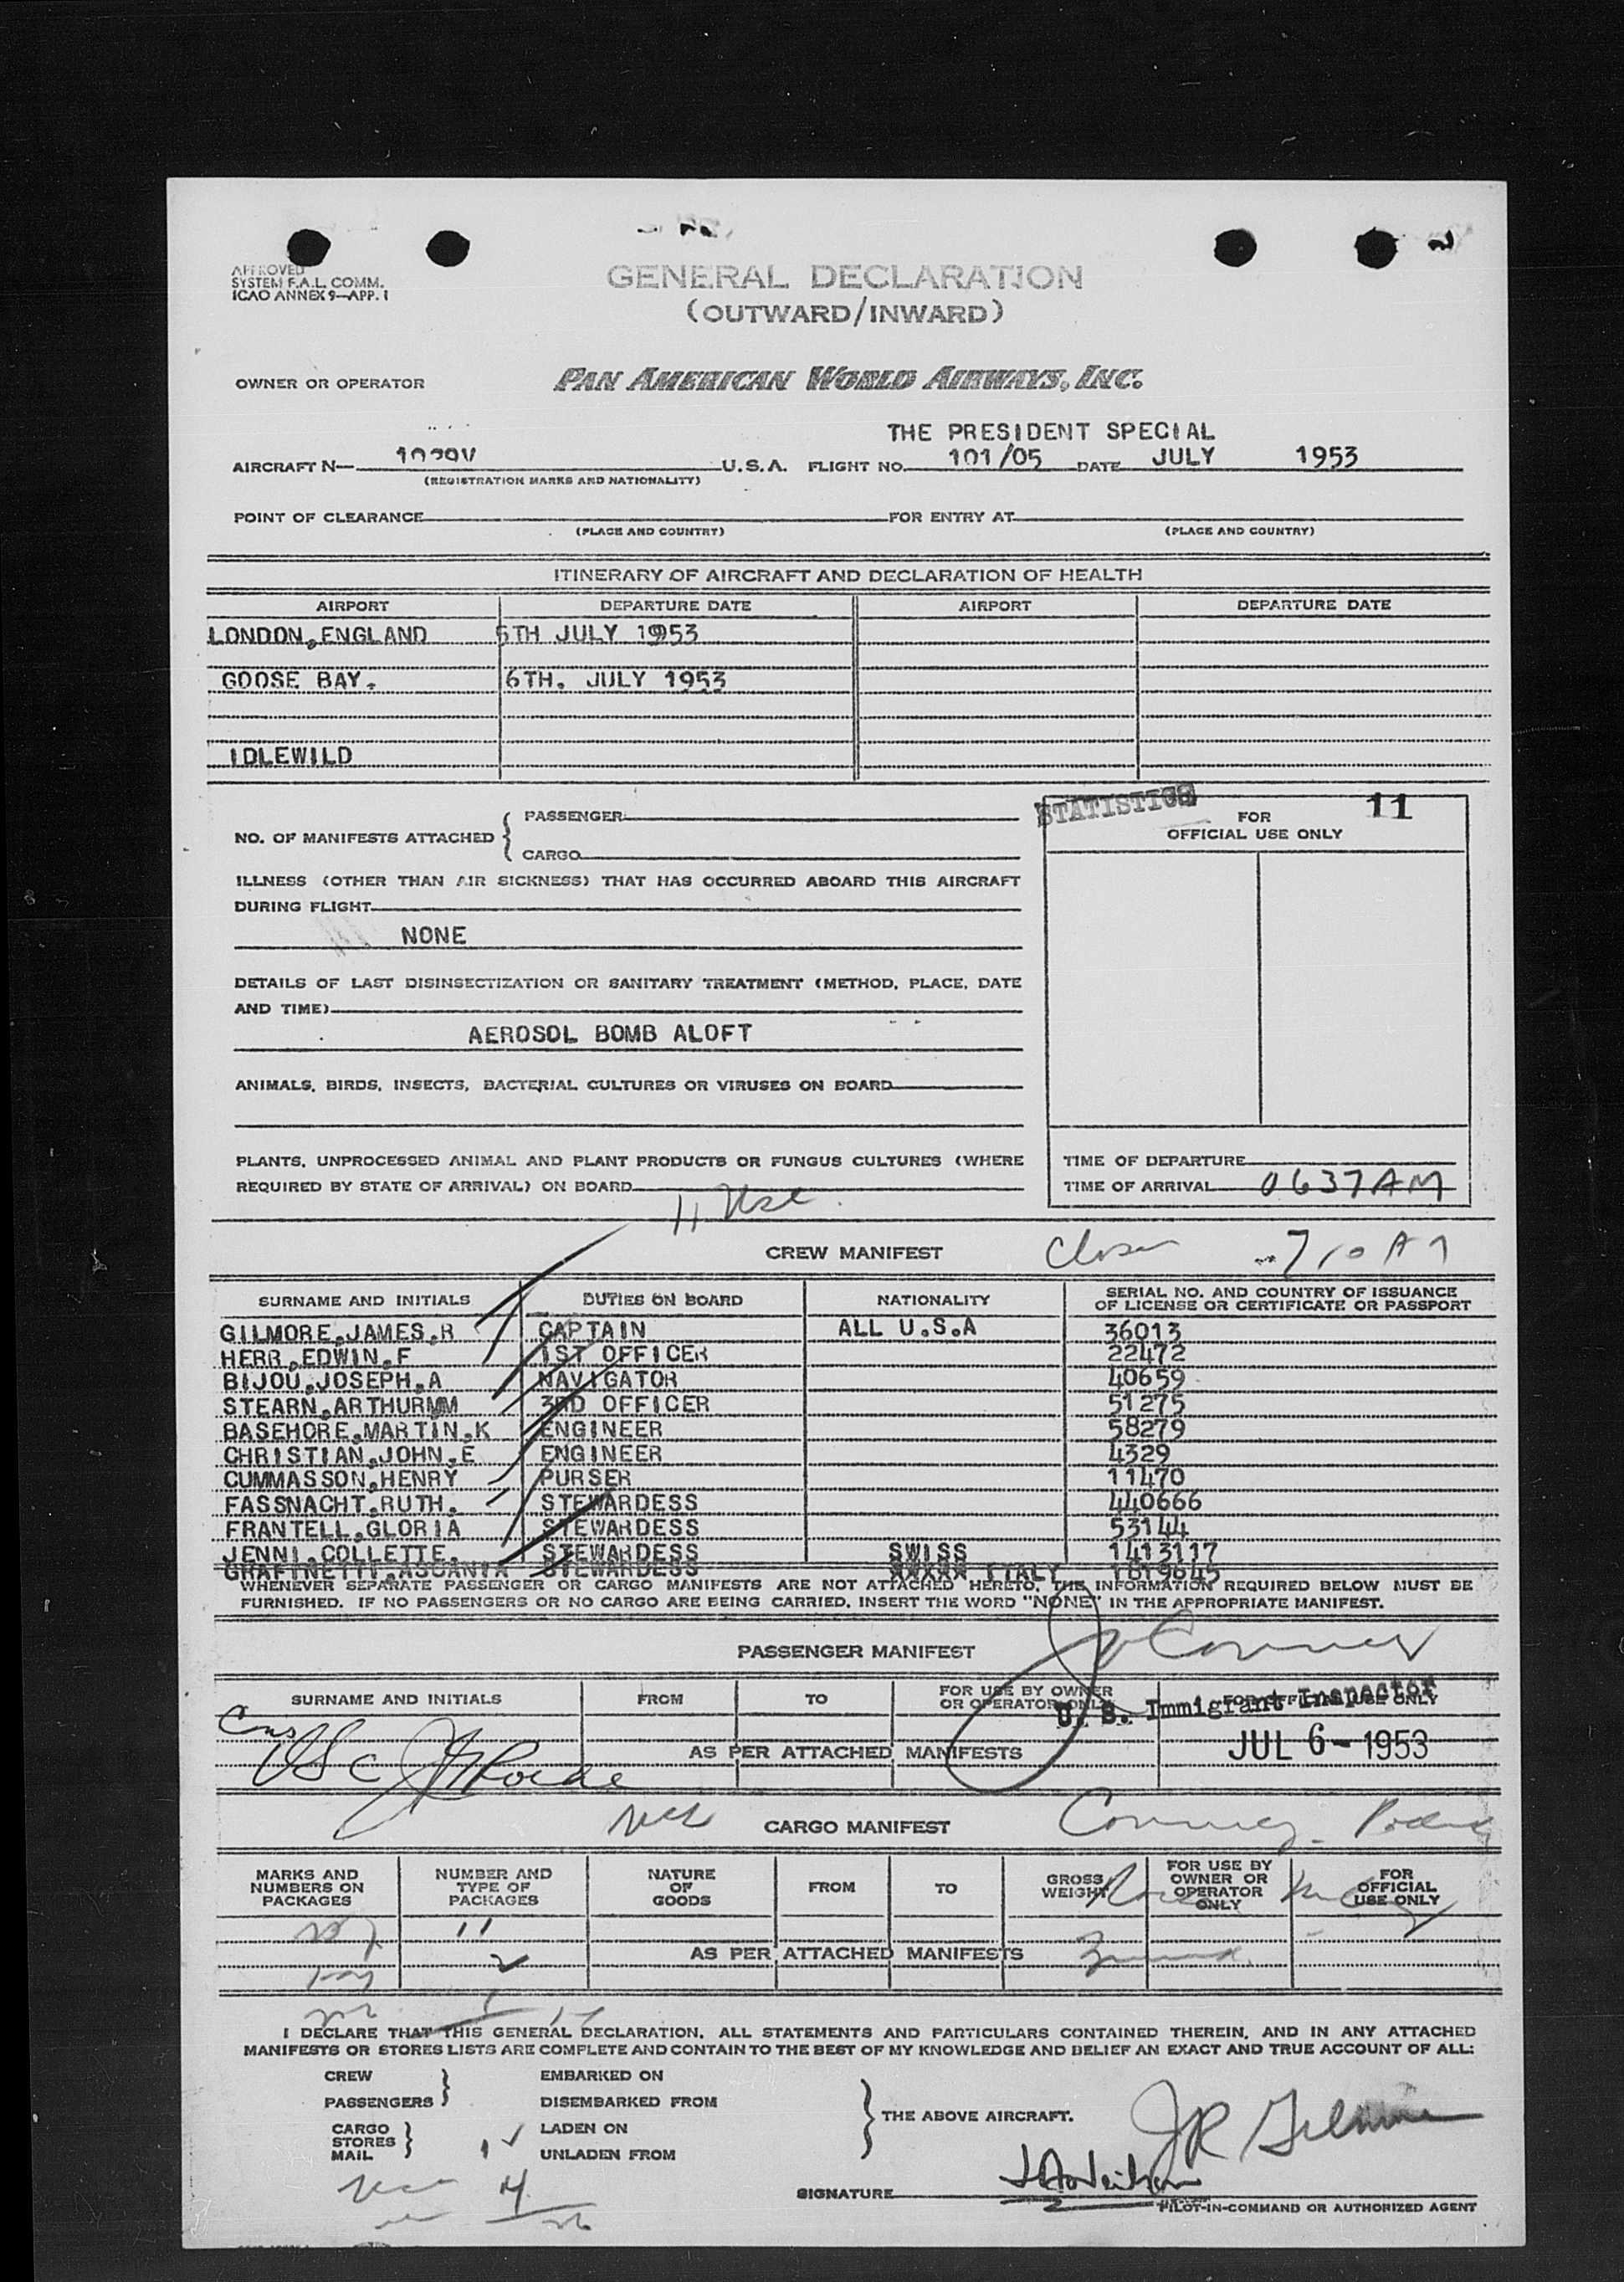 APPROVED
SYSTEM F.A.L. COMM.
ICAO ANNEX 9—APP. 1
GENERAL DECLARATION
(OUTWARD/INWARD)
OWNER OR OPERATOR PAN AMERICAN WORLD AIRWAYS, INC.
THE PRESIDENT SPECIAL
AIRCRAFT N— 1029V U.S.A. FLIGHT NO. 101/05 DATE JULY 1953
(REGISTRATION MARKS AND NATIONALITY)
POINT OF CLEARANCE FOR ENTRY AT
(PLACE AND COUNTRY) (PLACE AND COUNTRY)
ITINERARY OF AIRCRAFT AND DECLARATION OF HEALTH
AIRPORT DEPARTURE DATE AIRPORT DEPARTURE DATE
LONDON,ENGLAND 5TH JULY 1953
GOOSE BAY. 6TH. JULY 1953
IDLEWILD
STATISTICS 11
FOR
OFFICIAL USE ONLY
NO. OF MANIFESTS ATTACHED { PASSENGER
CARGO
ILLNESS (OTHER THAN AIR SICKNESS) THAT HAS OCCURRED ABOARD THIS AIRCRAFT
DURING FLIGHT
NONE
DETAILS OF LAST DISINSECTIZATION OR SANITARY TREATMENT (METHOD, PLACE, DATE
AND TIME)
AEROSOL BOMB ALOFT
ANIMALS, BIRDS, INSECTS, BACTERIAL CULTURES OR VIRUSES ON BOARD
PLANTS, UNPROCESSED ANIMAL AND PLANT PRODUCTS OR FUNGUS CULTURES (WHERE
REQUIRED BY STATE OF ARRIVAL) ON BOARD
TIME OF DEPARTURE
TIME OF ARRIVAL 0637AM
11
CREW MANIFEST
SURNAME AND INITIALS DUTIES ON BOARD NATIONALITY SERIAL NO. AND COUNTRY OF ISSUANCE
OF LICENSE OR CERTIFICATE OR PASSPORT
GILMORE,JAMES,R CAPTAIN ALL U.S.A 36013
HERR,EDWIN,F 1ST OFFICER 22472
BIJOU,JOSEPH,A NAVIGATOR 40659
STEARN,ARTHURMM 3RD OFFICER 51275
BASEHORE,MARTIN,K ENGINEER 58279
CHRISTIAN,JOHN,E ENGINEER 4329
CUMMASSON,HENRY PURSER 11470
FASSNACHT,RUTH. STEWARDESS 440666
FRANTELL,GLORIA STEWARDESS 53144
JENNI,COLLETTE. STEWARDESS SWISS 1413117
GRAFINETTI,ASCANIA STEWARDESS XXXXX ITALY 1819645
WHENEVER SEPARATE PASSENGER OR CARGO MANIFESTS ARE NOT ATTACHED HERETO, THE INFORMATION REQUIRED BELOW MUST BE
FURNISHED. IF NO PASSENGERS OR NO CARGO ARE BEING CARRIED, INSERT THE WORD "NONE" IN THE APPROPRIATE MANIFEST.
PASSENGER MANIFEST
SURNAME AND INITIALS FROM TO FOR USE BY OWNER
OR OPERATOR ONLY FOR OFFICIAL USE ONLY
U. S. Immigrant Inspector
AS PER ATTACHED MANIFESTS JUL 6 - 1953
CARGO MANIFEST
MARKS AND
NUMBERS ON
PACKAGES
NUMBER AND
TYPE OF
PACKAGES
NATURE
OF
GOODS
FROM TO GROSS
WEIGHT
FOR USE BY
OWNER OR
OPERATOR
ONLY
FOR
OFFICIAL
USE ONLY
11
AS PER ATTACHED MANIFESTS
2
I DECLARE THAT THIS GENERAL DECLARATION, ALL STATEMENTS AND PARTICULARS CONTAINED THEREIN, AND IN ANY ATTACHED
MANIFESTS OR STORES LISTS ARE COMPLETE AND CONTAIN TO THE BEST OF MY KNOWLEDGE AND BELIEF AN EXACT AND TRUE ACCOUNT OF ALL:
CREW EMBARKED ON
PASSENGERS } DISEMBARKED FROM
THE ABOVE AIRCRAFT.
CARGO LADEN ON
STORES }
MAIL UNLADEN FROM
JR Gilmore
SIGNATURE
PILOT-IN-COMMAND OR AUTHORIZED AGENT